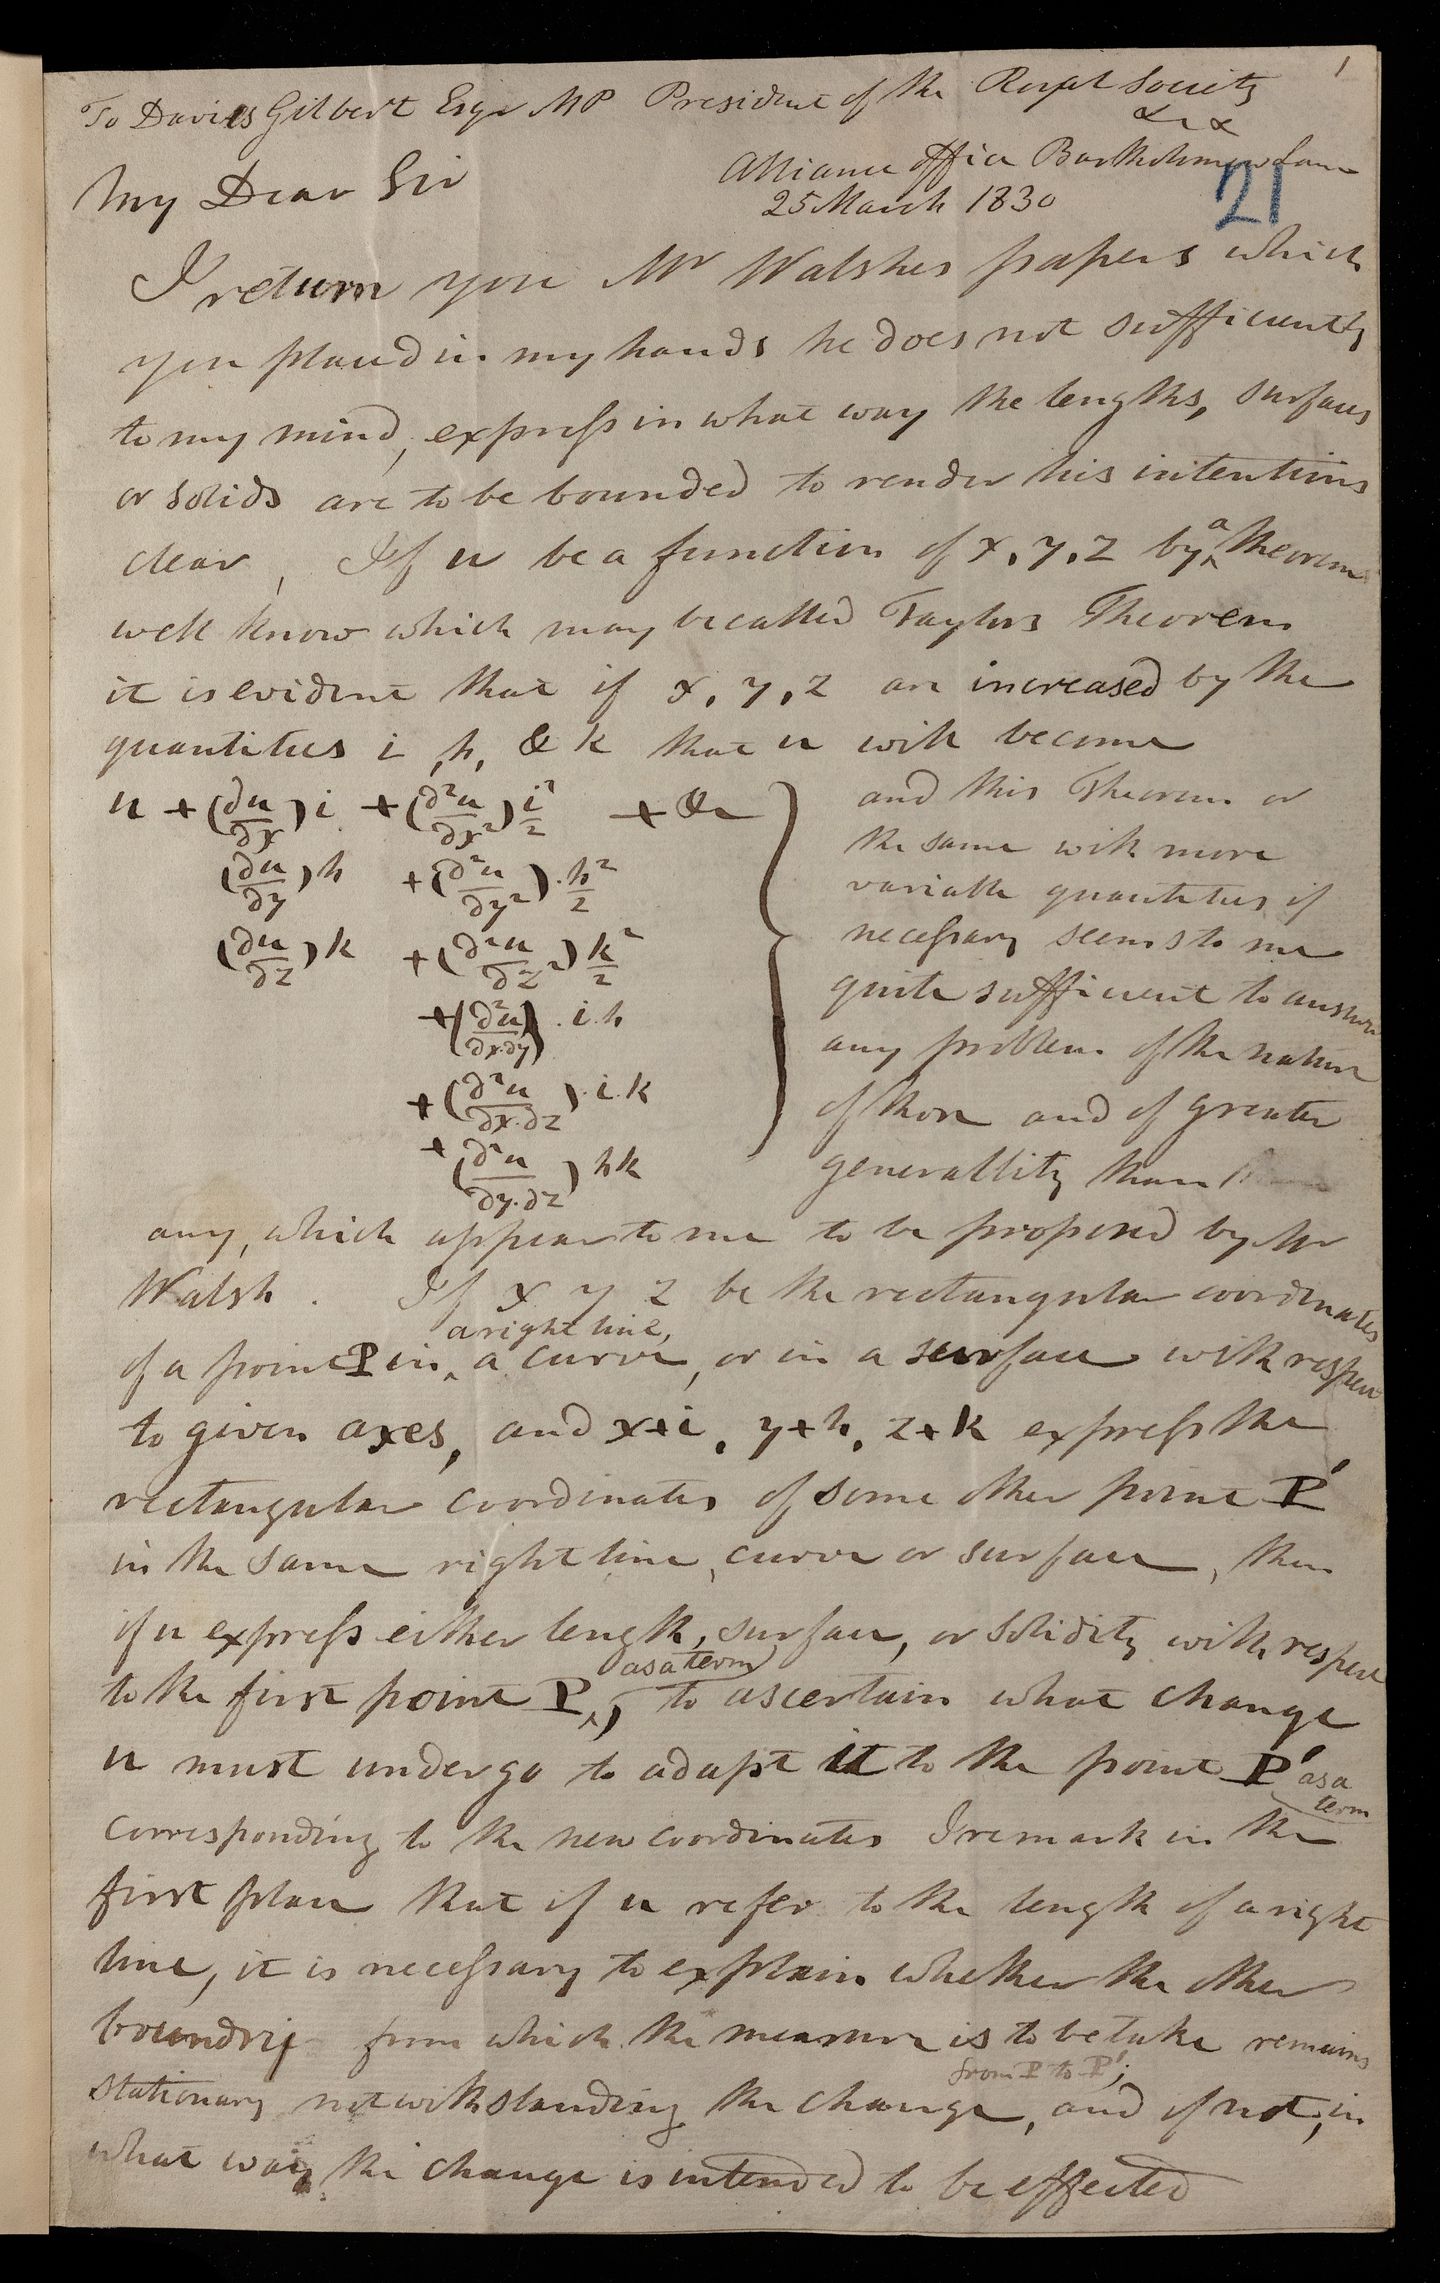 1
To Davies Gilbert Esqr MP President of the Royal Society
&c &
Alliance Office Bartholomew Lane
25 March 1830
21
My Dear Sir
I return you Mr Walshes papers which
you placed in my hands he does not sufficiently
to my mind, express in what way the lengths, surfaces
or solids are to be bounded to render his intentions
clear, If u be a function of x, y, z by a theorem
well know which may be called Taylors Theorem
it is evident that if x, y, z are increased by the
quantities i, h, & k that u will become
u + (∂u/∂x) i + (∂²u/∂x²) i²/2 + &c
(∂u/∂y) h + (∂²u/∂y²) . h²/2
(∂u/∂z) k + (∂²u/∂z²) k²/2
+ (∂²u/∂x.∂y) . i.h
+ (∂²u/∂x.∂z) . i.k
+ (∂²u/∂y.∂z) hk
and this Theorem or
the same with more
variable quantities if
necessary seems to me
quite sufficient to answer
any problem of the nature
of those and of greater
generallity than
any, which appear to me to be proposed by Mr
Walsh. If x y z be the rectangular coordinates
of a point P in a right line, a curve, or in a surface with respect
to given axes, and x+i, y+h, z+k express the
rectangular coordinates of some other point P'
in the same right line, curve or surface, then
if u express either length, surface, or solidity with respect
to the first point P, as a term, to ascertain what change
u must undergo to adapt it to the point P' as a term
corresponding to the new coordinates I remark in the
first place that if u refer to the length of a right
line, it is necessary to explain whether the other
boundry from which the measure is to be take remains
stationary notwithstanding the change from P to P'; and if not, in
what way the change is intended to be effected